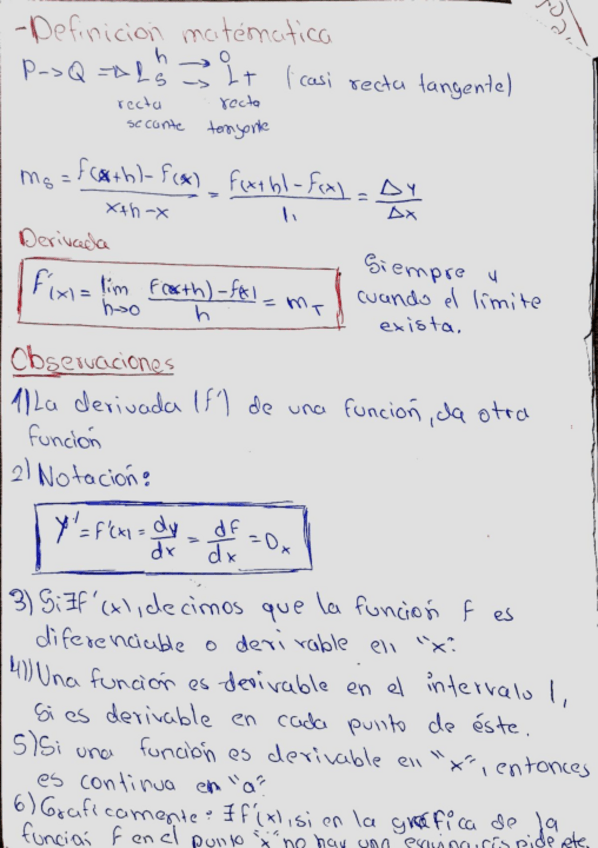 -Definición matemática
P->Q =Δ L_S h→0 -> L_T (casi recta tangente)
recta recta
secante tangente
m_S = f(x+h)-f(x) / x+h-x = f(x+h)-f(x) / h = Δy / Δx
Derivada
f'(x) = lim h→0 f(x+h)-f(x) / h = m_T
Siempre y
cuando el límite
exista.
Observaciones
1)La derivada (f') de una función, da otra
función
2) Notación:
y' = f'(x) = dy/dx = df/dx = D_x
3) Si ∃f'(x), decimos que la función f es
diferenciable o derivable en "x".
4))Una función es derivable en el intervalo I,
si es derivable en cada punto de éste.
5)Si una función es derivable en "x", entonces
es continua en "a".
6)Graficamente: ∃f'(x), si en la gráfica de la
función f en el punto "x" no hay una esquina, cúspide, etc.